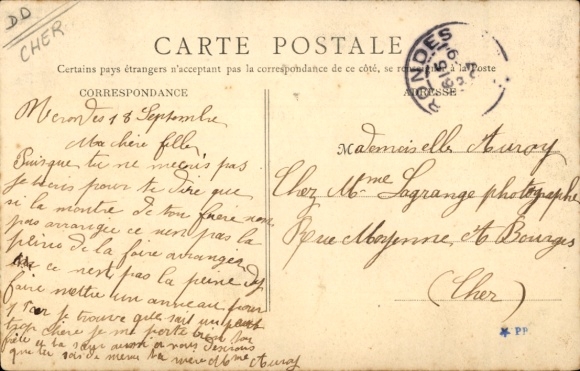 DD
CHER
CARTE POSTALE
Certains pays étrangers n'acceptant pas la correspondance de ce côté, se renseigner à la Poste
CORRESPONDANCE
Mecondes 18 Septembre
Ma chère fille
Puisque tu ne mecris pas
je tecris pour te dire que
si la montre de ton frère nen
pas arrangee ce nen pas la
peine de la faire arranger
ce nen pas la peine de
faire mettre un anneau pour
je trouve que sait un peut
trop chere je me porte bien ton
frère et ta sœur aussi nous desirons
que tu sois de meme ta mère Mme Auroy
ADRESSE
Mademoiselle Auroy
Chez Mme Lagrange photographe
Rue Moyenne A Bourges
(Cher)
PP